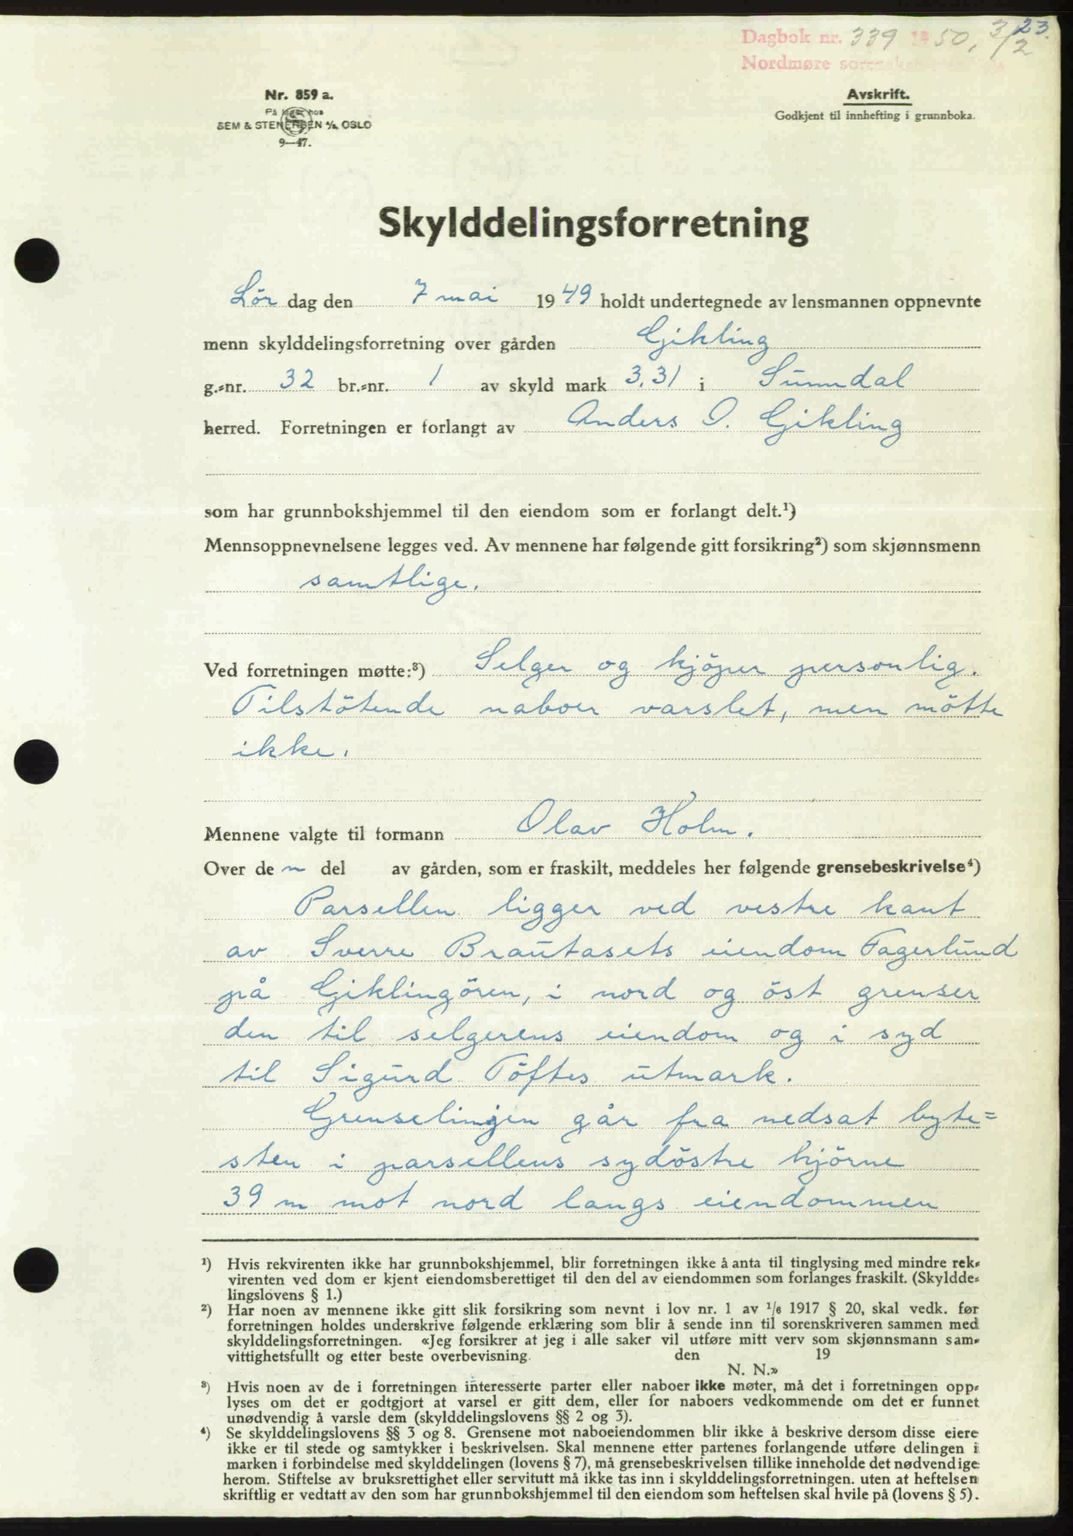 Dagbok nr. 339 1950, 3/2 23.
Nordmøre
Nr. 859 a.
På lager hos
SEM & STENERSEN A/S, OSLO
9—47.
Avskrift.
Godkjent til innhefting i grunnboka.
Skylddelingsforretning
Lör dag den 7 mai 1949 holdt undertegnede av lensmannen oppnevnte
menn skylddelingsforretning over gården Gikling
g.-nr. 32 br.-nr. 1 av skyld mark 3,31 i Sunndal
herred. Forretningen er forlangt av Anders O. Gikling
som har grunnbokshjemmel til den eiendom som er forlangt delt.¹)
Mennsoppnevnelsene legges ved. Av mennene har følgende gitt forsikring²) som skjønnsmenn
samtlige.
Ved forretningen møtte:³) Selger og kjöper personlig.
Tilstötende naboer varslet, men mötte
ikke.
Mennene valgte til formann Olav Holm.
Over de n del av gården, som er fraskilt, meddeles her følgende grensebeskrivelse⁴)
Parsellen ligger ved vestre kant
av Sverre Brautasets eiendom Fagerlund
på Giklingören, i nord og öst grenser
den til selgerens eiendom og i syd
til Sigurd Töftes utmark.
Grenselinjen går fra nedsat byte=
sten i parsellens sydöstre hjörne
39 m mot nord langs eiendommen
¹) Hvis rekvirenten ikke har grunnbokshjemmel, blir forretningen ikke å anta til tinglysing med mindre rek-
virenten ved dom er kjent eiendomsberettiget til den del av eiendommen som forlanges fraskilt. (Skyldde-
lingslovens § 1.)
²) Har noen av mennene ikke gitt slik forsikring som nevnt i lov nr. 1 av 1/6 1917 § 20, skal vedk. før
forretningen holdes underskrive følgende erklæring som blir å sende inn til sorenskriveren sammen med
skylddelingsforretningen. «Jeg forsikrer at jeg i alle saker vil utføre mitt verv som skjønnsmann sam-
vittighetsfullt og etter beste overbevisning. den 19
N. N.»
³) Hvis noen av de i forretningen interesserte parter eller naboer ikke møter, må det i forretningen opp-
lyses om det er godtgjort at varsel er gitt dem, eller for naboers vedkommende om det er funnet
unødvendig å varsle dem (skylddelingslovens §§ 2 og 3).
⁴) Se skylddelingslovens §§ 3 og 8. Grensene mot naboeiendommen blir ikke å beskrive dersom disse eiere
ikke er til stede og samtykker i beskrivelsen. Skal mennene etter partenes forlangende utføre delingen i
marken i forbindelse med skylddelingen (lovens § 7), må grensebeskrivelsen tillike inneholde det nødvendige
herom. Stiftelse av bruksrettighet eller servitutt må ikke tas inn i skylddelingsforretningen. uten at heftelsen
skriftlig er vedtatt av den som har grunnbokshjemmel til den eiendom som heftelsen skal hvile på (lovens § 5).